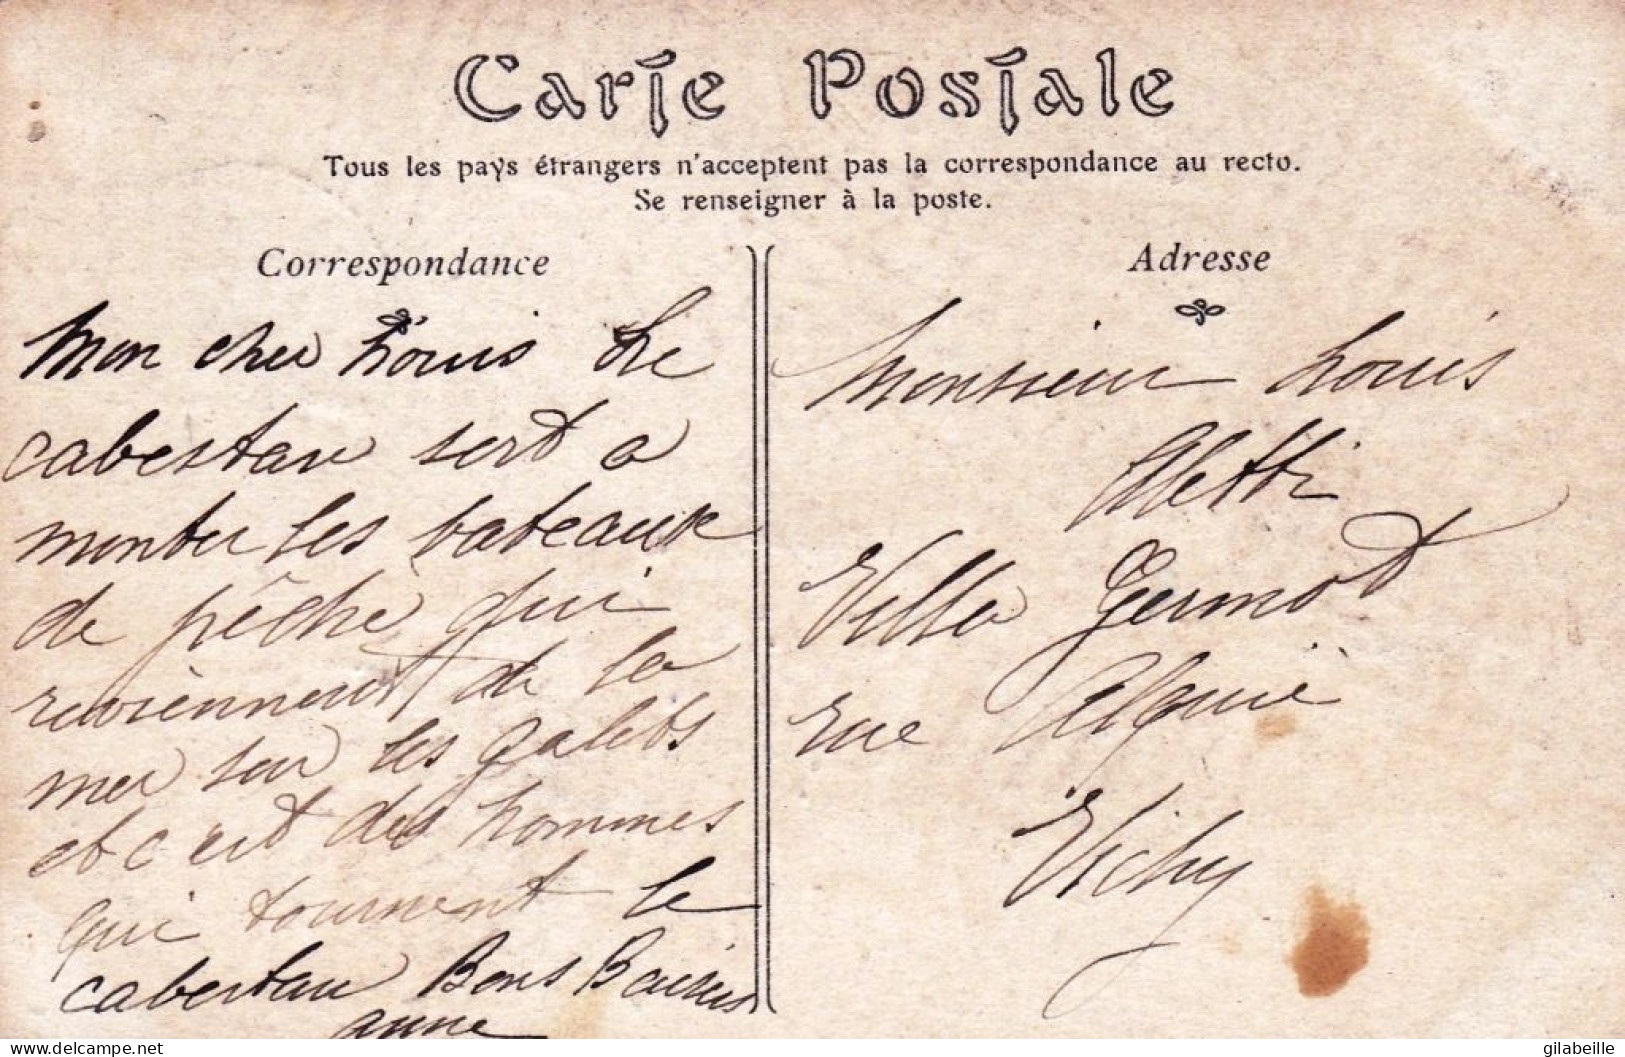 Carte Postale
Tous les pays étrangers n'acceptent pas la correspondance au recto.
Se renseigner à la poste.
Correspondance
Mon cher Louis Le
cabestan sert a
monter les bateaux
de pêche qui
reviennent de la
mer sur les galets
et c'est des hommes
qui tournent le
cabestan Bons Baisers
anne
Adresse
Monsieur Louis
Aletti
Villa Germot
rue Alquié
Vichy
delcampe.net
gilabeille